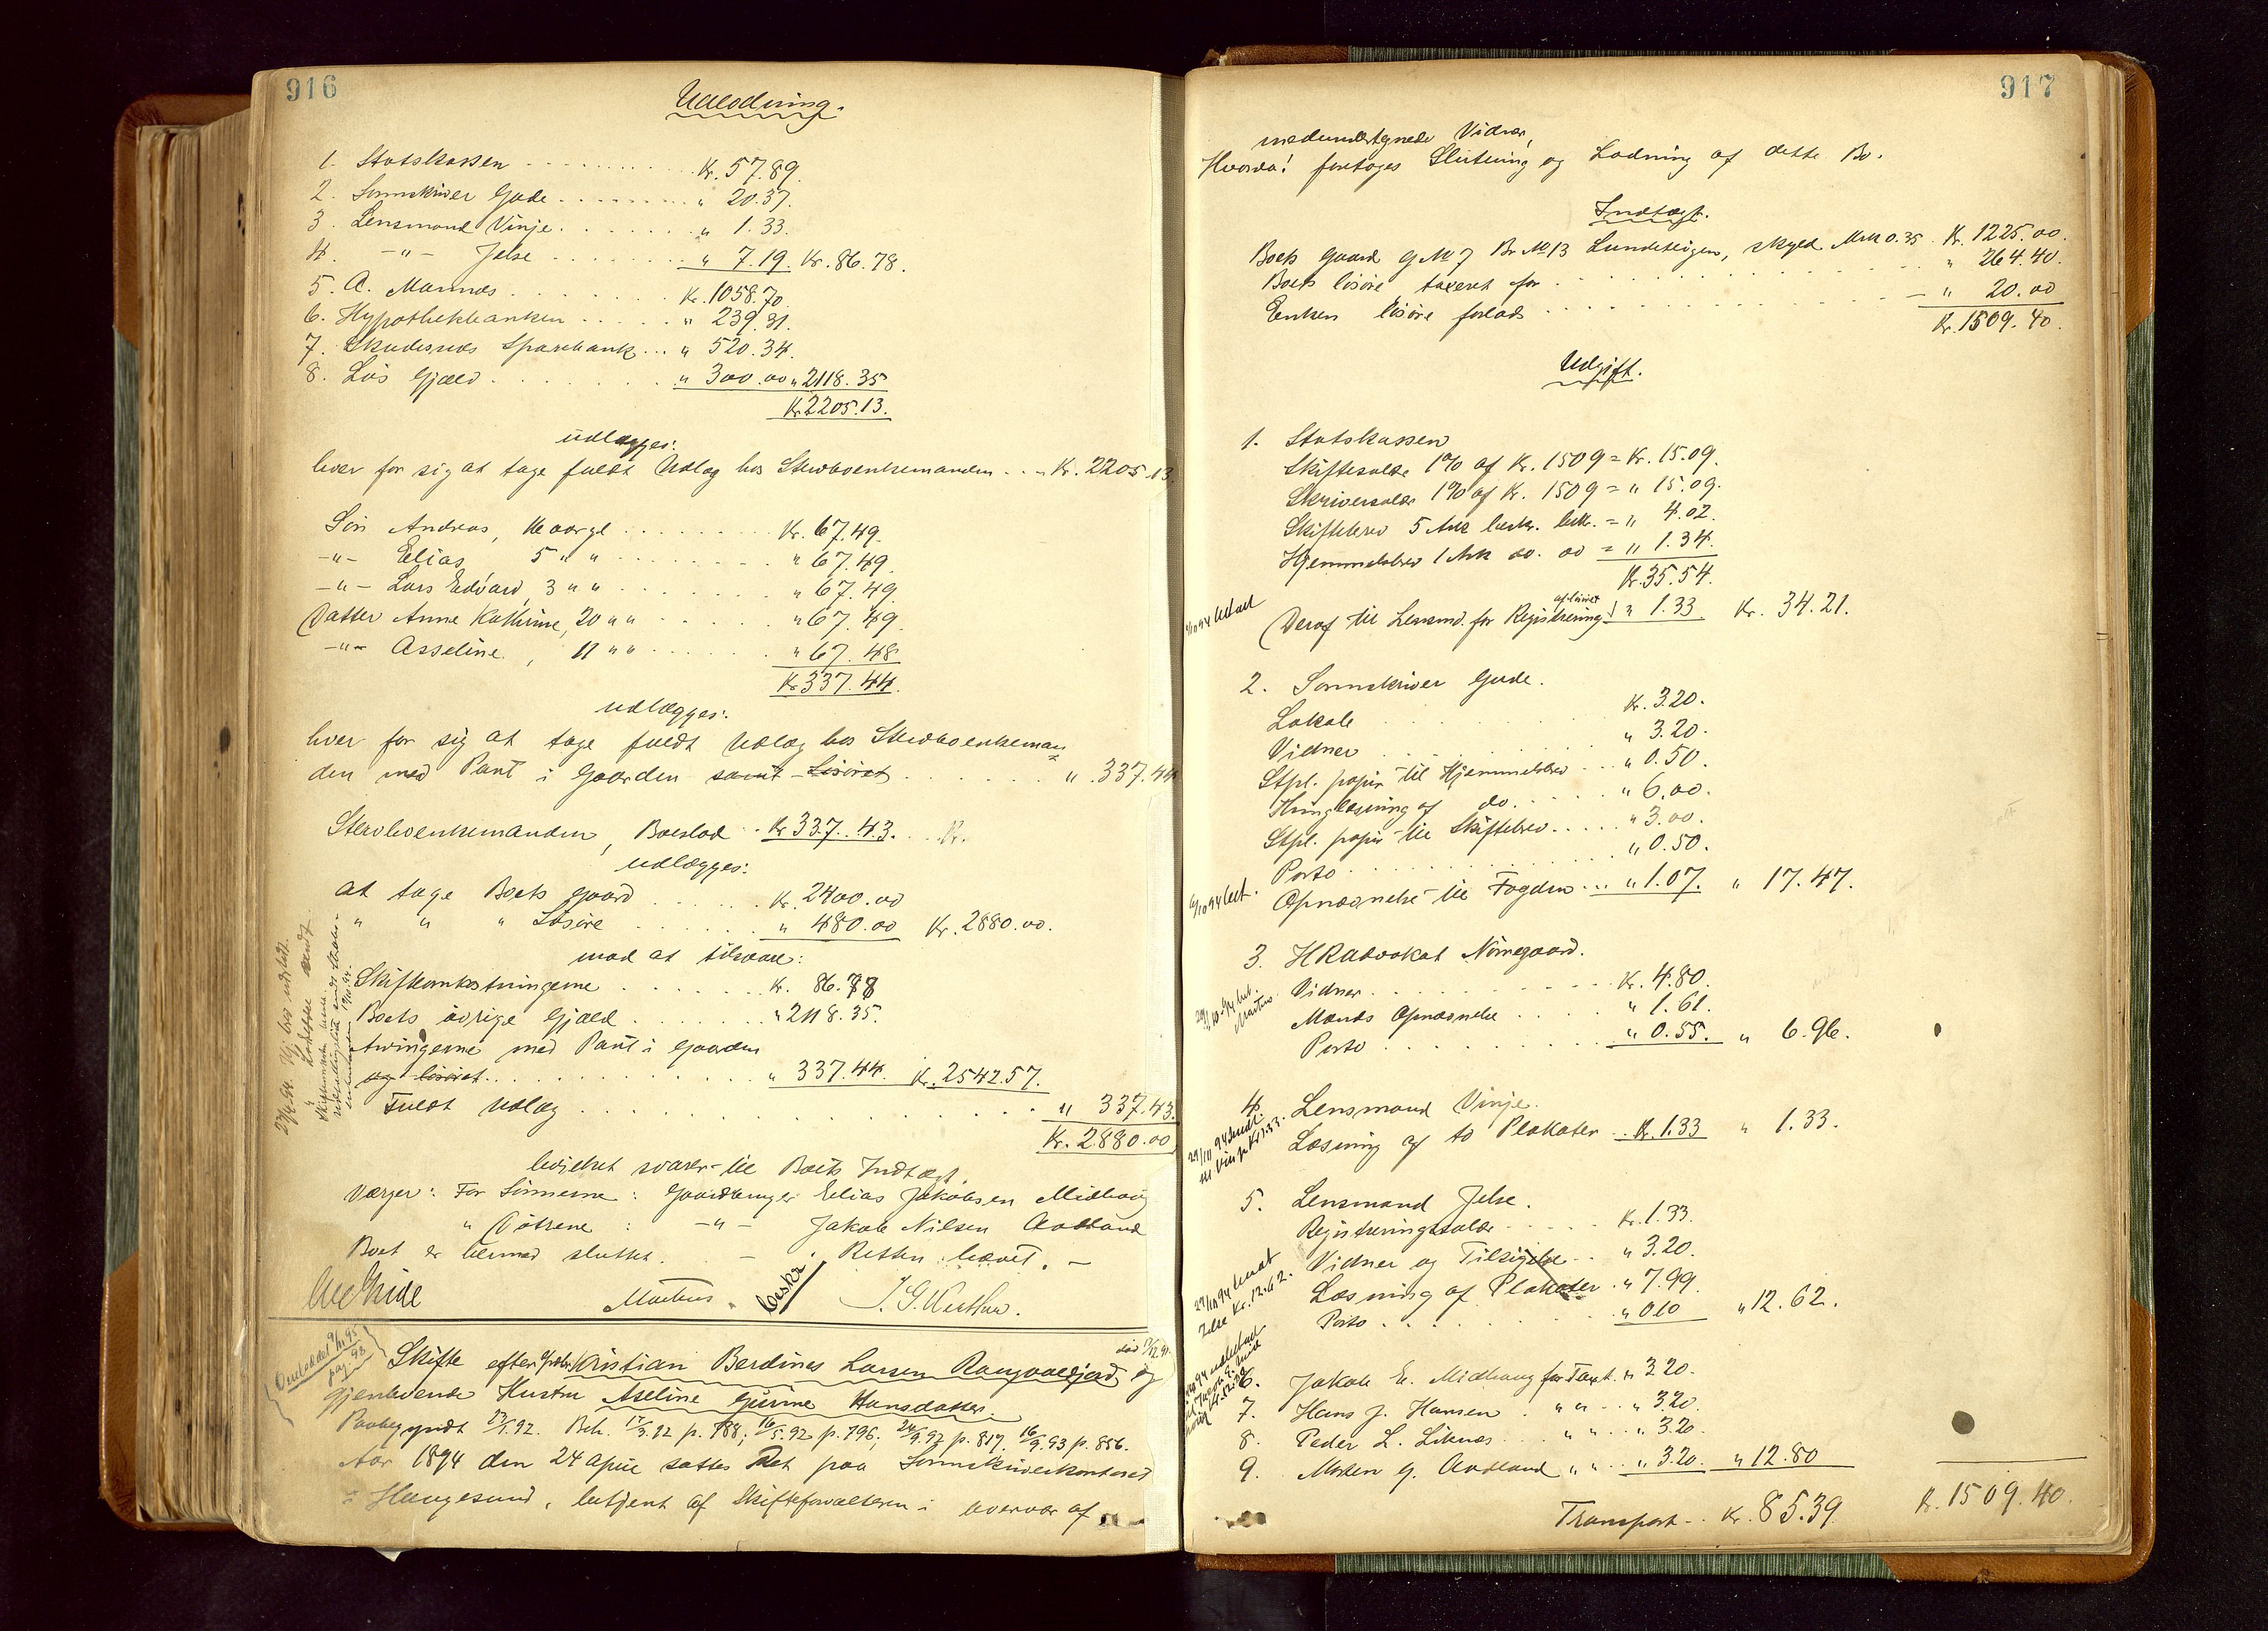 916
Udlodning.
1. Statskassen . . . . . Kr. 57.89.
2. Sorenskriver Gude . . . . . " 20.37.
3. Lensmand Vinje . . . . . " 1.33.
4. -"- Jelse . . . . . " 7.19. Kr. 86.78.
5. A. Mannes . . . . . Kr. 1058.70.
6. Hypothekbanken . . . . . " 239.31.
7. Skudesnes Sparebank . . . " 520.34.
8. Løs Gjæld . . . . . " 300.00 " 2118.35
Kr. 2205.13.
udlægges:
hver for sig at tage fuldt Udlæg hos Stervboenkemanden . . " Kr. 2205.13.
Søn Andreas, 16 aar gl . . . . . Kr. 67.49.
-"- Elias 5 " " . . . . . " 67.49.
-"- Lars Edvard, 3 " " . . . . . " 67.49.
Datter Anne Kathrine, 20 " " . . . . . " 67.49.
-"- Asseline, 11 " " . . . . . " 67.48
Kr. 337.44.
udlægges:
hver for sig at tage fuldt Udlæg hos Stervboenkeman
den med Pant i Gaarden samt Løsøret . . . . . " 337.44
Stervboenkemanden, Boeslod . . Kr. 337.43. . . Kr.
udlægges:
at tage Boets Gaard . . . . . Kr. 2400.00
" " " Løsøre . . . . . " 480.00 Kr. 2880.00.
mod at tilsvare:
Skifteomkostningerne . . . . . Kr. 86.78
Boets øvrige Gjæld . . . . . " 2118.35.
Arvingerne med Pant i Gaarden
og løsøret . . . . . " 337.44. Kr. 2542.57.
Fuldt Udlæg . . . . . " 337.43.
Kr. 2880.00
hvilket svarer til Boets Indtægt.
Værger: For Sønnerne: Gaardbruger Elias Jakobsen Midhaug
" Døtrene : -"- Jakob Nilsen Aadland
Boet er hermed sluttet. - Retten hævet. -
Skifte efter Kristian Berdines Larsen Rangvaldjord og
gjenlevende Hustru Aseline Gurine Hansdatter.
Paabegyndt 27/1.92. Beh. 17/3.92 p. 788; 16/5.92 p. 796; 24/9.92 p. 817. 16/9.93 p. 856.
Aar 1894 den 24 april sattes Ret paa Sorenskriverkontoret
i Haugesund, betjent af Skifteforvalteren i overvær af
917
medundertegnede Vidner,
Hvorda! foretoges Slutning og Lodning af dette Bo.
Indtægt.
Boets Gaard G No 7 Br No 13 Lundehøigen, skyld Mrk 0.35 Kr. 1225.00.
Boets løsøre taxeret for . . . . . " 264.40.
Enken løsøre forlods . . . . . " 20.00
Kr. 1509.40.
Udgift.
1. Statskassen
Skiftesalær 1% af Kr. 1509 = Kr. 15.09.
Skriversalær 1% af Kr. 1509 = " 15.09.
Skiftebrev 5 Ark beskr. bekr. = " 4.02.
Hjemmelsbrev 1 Ark do. do = " 1.34.
Kr. 35.54.
Deraf til Lensmd. for Registrering af løsøret " 1.33 Kr. 34.21.
2. Sorenskriver Gude.
Lokale . . . . . Kr. 3.20.
Vidner . . . . . " 3.20.
Stpl. papir til Hjemmelsbrev . . . " 0.50.
Thinglæsning af do. . . . . " 6.00.
Stpl. papir til Skiftebrev . . . . . " 3.00.
Porto . . . . . " 0.50.
Opnævnelse til Fogden . . . " 1.07. " 17.47.
3. HRadvokat Nørregaard.
Vidner . . . . . Kr. 4.80.
Mænds Opnævnelse . . . . " 1.61.
Porto . . . . . " 0.55. " 6.96.
4. Lensmand Vinje.
Læsning af to Plakater . . Kr. 1.33 " 1.33.
5. Lensmand Jelse.
Registreringssalær . . . . . Kr. 1.33.
Vidner og Tilsigelse . . " 3.20.
Læsning af Plakater . " 7.99.
Porto . . . . . " 0.10 " 12.62.
6. Jakob E. Midhaug for Taxt. " 3.20.
7. Hans J. Hansen . " " . . " 3.20.
8. Peder L. Liknes . . " " . . " 3.20
9. Morten G. Aadland " " . . " 3.20. " 12.80
Transport . . Kr. 85.39 Kr. 1509.40.